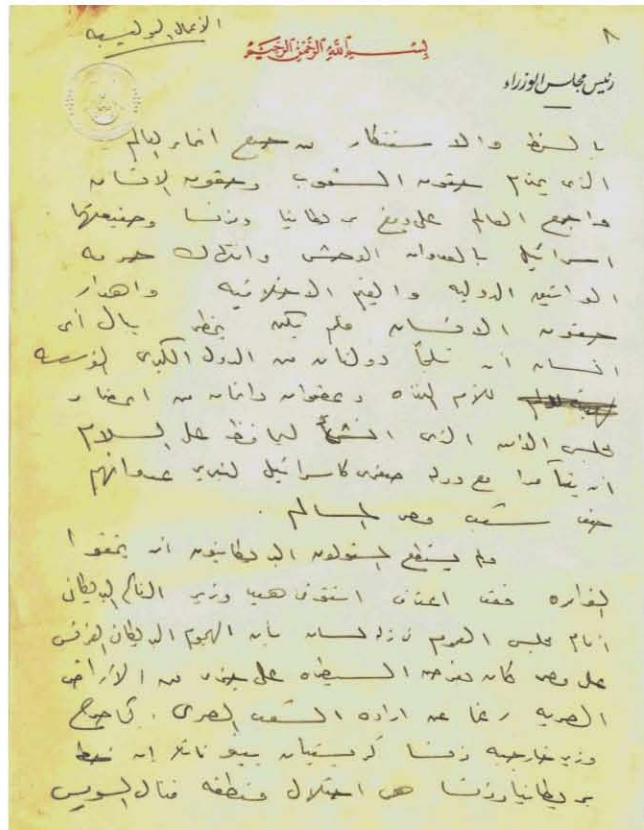 الأعمال البوليسية
٨
بسم الله الرحمن الرحيم
رئيس مجلس الوزراء
بالسخط والاستنكار من جميع انحاء العالم
الذى يحترم حقوق الشعوب وحقوق الانسان
واجمع العالم على دمغ بريطانيا وفرنسا وصنيعتهما
اسرائيل بالعدوان الوحشى وانتهاك حرمة
المواثيق الدولية والقيم الاخلاقية واهدار
حقوق الانسان فلم يكن يخطر ببال أى
انسان ان تلجأ دولتان من الدول الكبرى المؤسسة
للأمم المتحدة وعضوان دائمان من اعضاء
مجلس الأمن الذى انشئ ليحافظ على السلام
ان يتآمرا مع دولة صغرى كاسرائيل لتدبير عدوانهم
ضد شعب مصر المسالم .
ولم يستطع المسئولون البريطانيون ان يخفوا
فقد اعترف انتونى هيد وزير البريطانى
امام مجلس العموم فى بأن الهجوم البريطانى الفرنسى
على مصر كان بغرض السيطرة على جزء من الأراضى
المصرية رغما عن ارادة الشعب المصرى . كما صرح
وزير خارجية فرنسا كريستيان بينو قائلا ان
بريطانيا وفرنسا هى احتلال منطقة قنال السويس